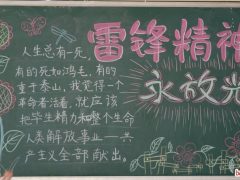 雷锋精神
永放光
人生总有一死，
有的死如鸿毛，有的
重于泰山，我觉得一个
革命者活着，就应该
把毕生精力和整个生命
人类解放事业—共
产主义全部献出。